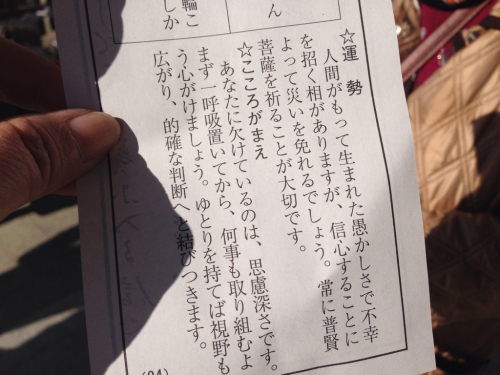 ☆運 勢
人間がもって生まれた愚かしさで不幸
を招く相がありますが、信心することに
よって災いを免れるでしょう。常に普賢
菩薩を祈ることが大切です。
☆こころがまえ
あなたに欠けているのは、思慮深さです。
まず一呼吸置いてから、何事も取り組むよ
う心がけましょう。ゆとりを持てば視野も
広がり、的確な判断へと結びつきます。
ん
輪こ
しか